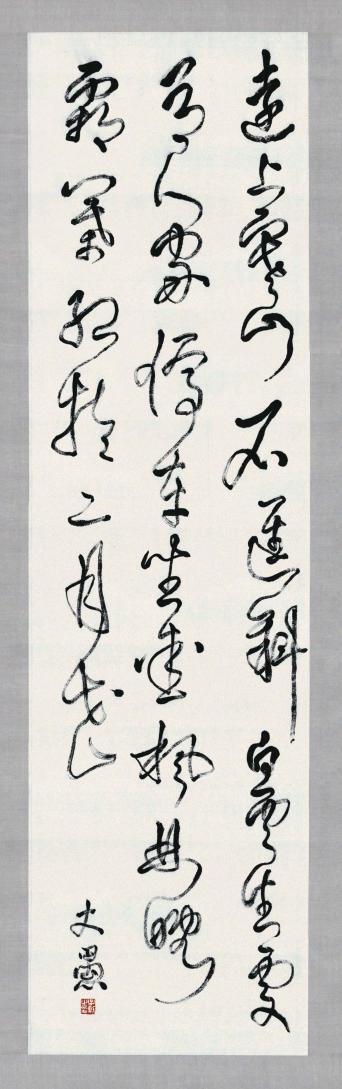 遠上寒山石逕斜白雲生處
有人家停車坐愛楓林晚
霜葉紅於二月花
愚